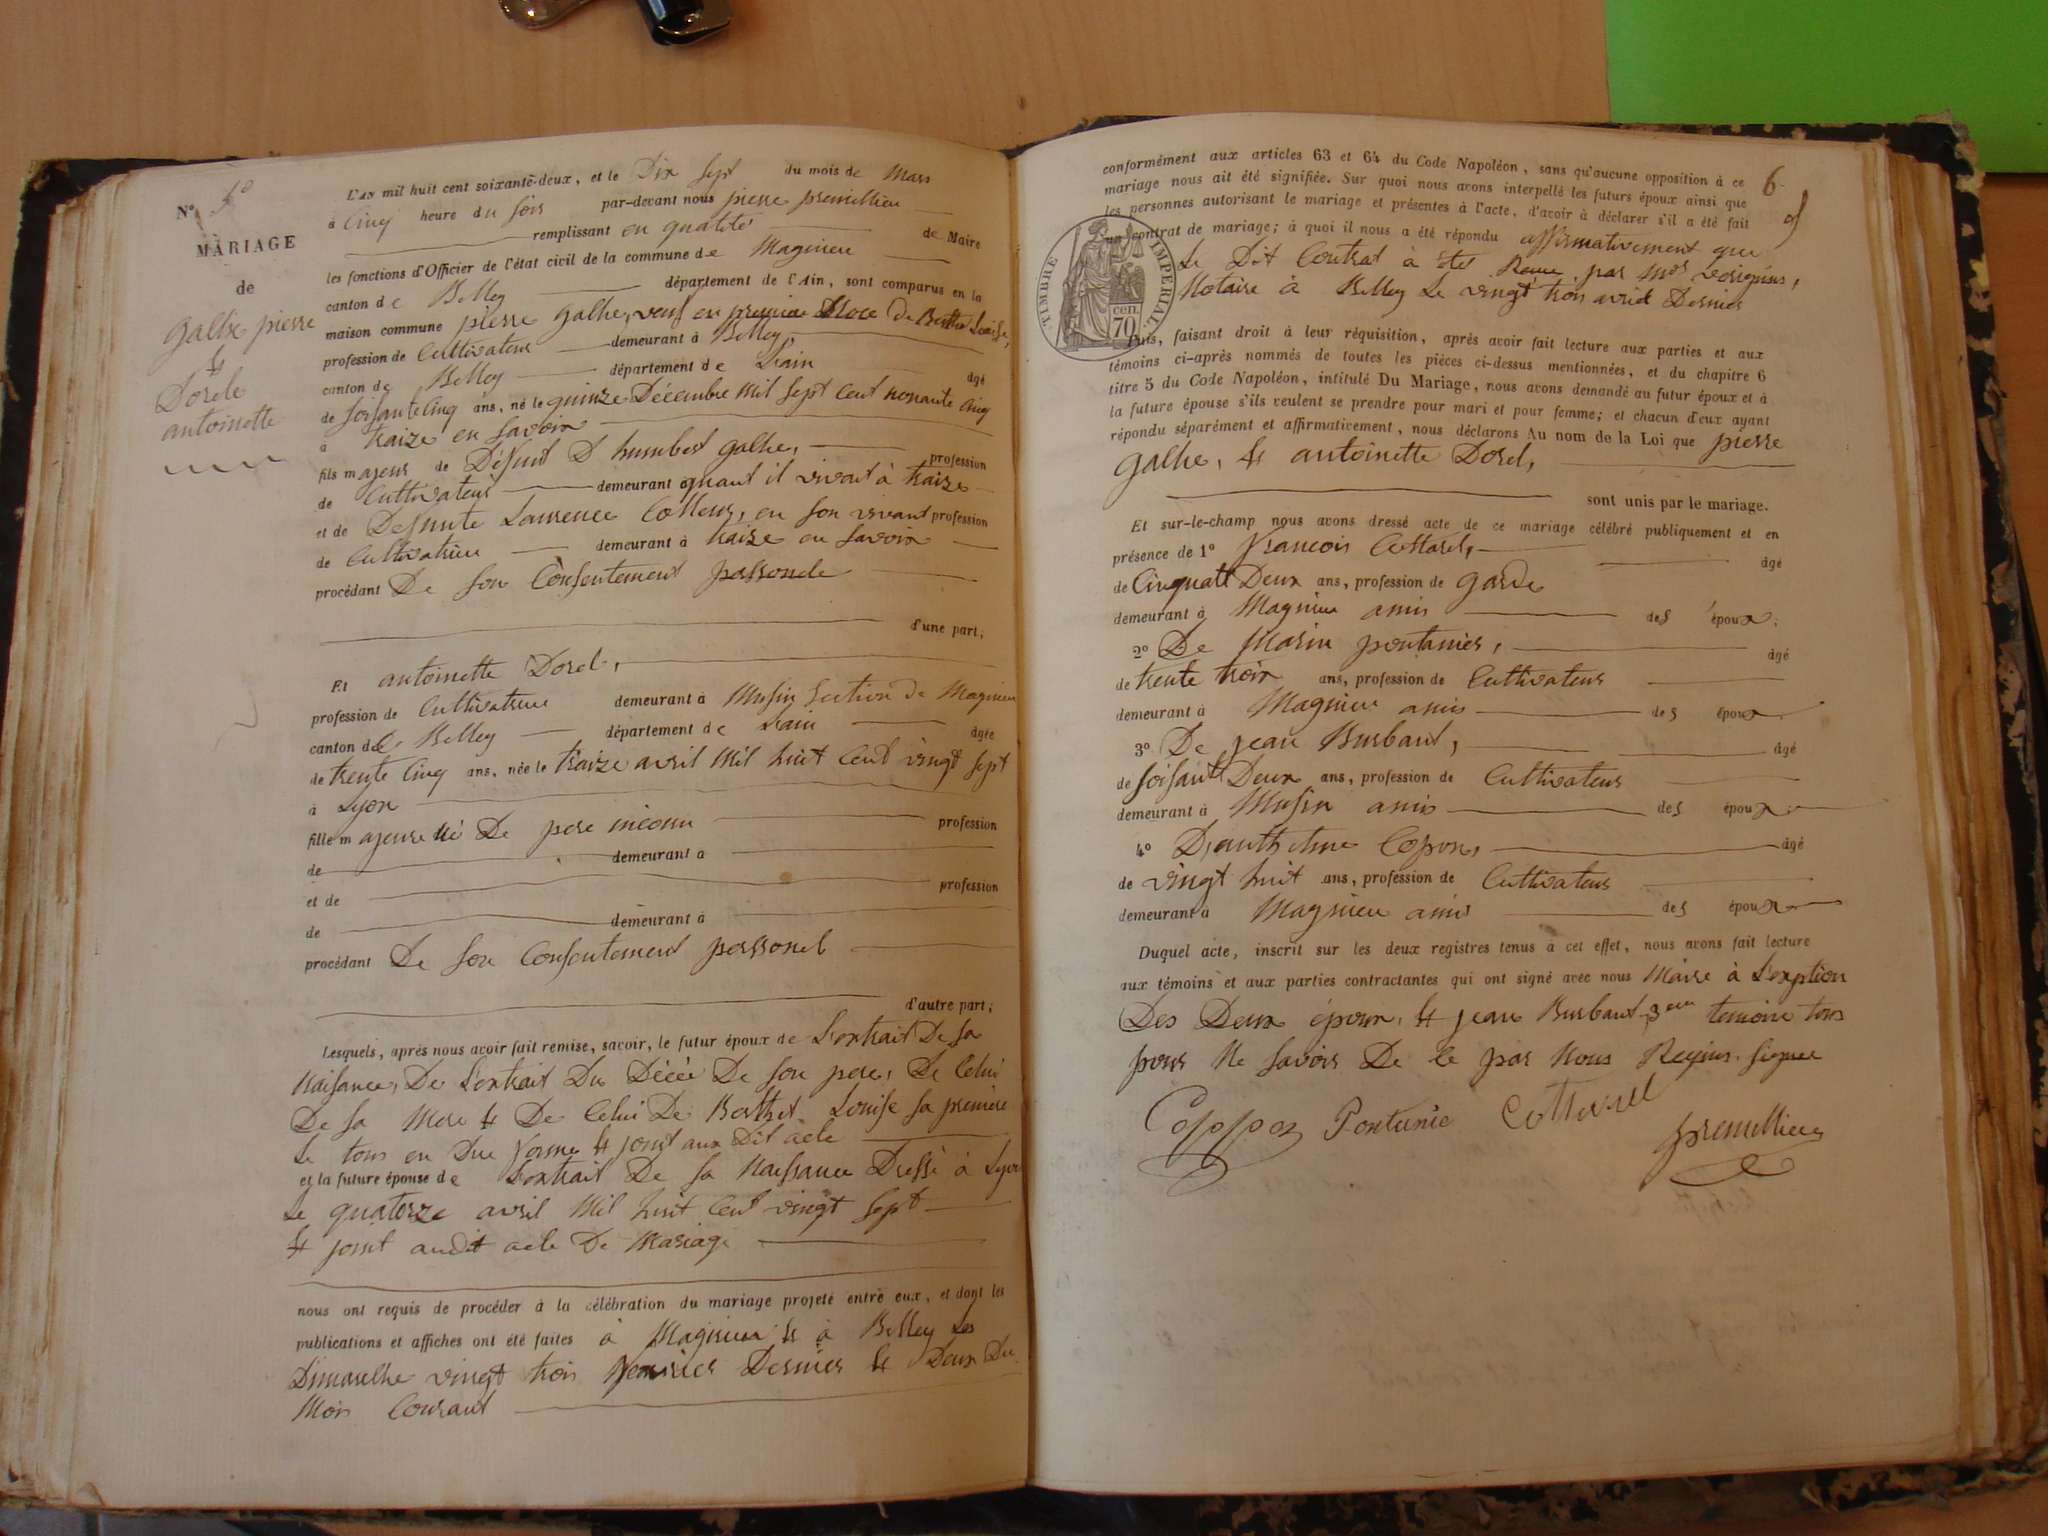 N°
MARIAGE
de
Galhe pierre
&
Dorele
antoinette
L'an mil huit cent soixante-deux, et le Dix sept du mois de Mars
à Cinq heure du soir par-devant nous pierre premillieu
remplissant en qualité de Maire
les fonctions d'Officier de l'état civil de la commune de Magnieu
canton de Belley département de l'Ain, sont comparus en la
maison commune pierre Galhe, veuf en premiere Noce De Berthet Louise,
profession de Cultivateur demeurant à Belley,
canton de Belley département de L'ain âgé
de soisante Cinq ans, né le quinze Décembre Mil sept Cent nonante Cinq
à traize en Savoir
fils majeur de Défunt D humbert galhe, profession
de Cultivateur demeurant à quant il vivait à traize
et de Défunte Laurence Colleur, en son vivant profession
de Cultivatrice demeurant à traize en Savoir
procédant De son Consentement personele
d'une part;
Et antoinette Dorel,
profession de Cultivatrice demeurant à Musin Section De Magnieu
canton de Belley département de L'ain âgée
de trente Cinq ans, née le traize avril Mil huit Cent vingt sept
à Lyon
fille majeure né De pere inconu profession
de demeurant à
et de profession
de demeurant à
procédant De son Consentement personel
d'autre part;
Lesquels, après nous avoir fait remise, savoir, le futur époux de L'extrait De sa
Naisance, De L'extrait Du Décée De son pere, De Celui
De sa Mere & De Celui De Berthet Louise sa premiere
Le tous en Due forme & joint aux Dit acte
et la future épouse de L'extrait De sa Naissance Dressé à Lyon
Le quatorze avril Mil huit Cent vingt sept
& joint audit acte De Mariage
nous ont requis de procéder à la célébration du mariage projeté entre eux, et dont les
publications et affiches ont été faites à Magnieu & à Belley Les
Dimanche vingt trois Fevrier Dernier & Deux Du
Mois Courant
6
conformément aux articles 63 et 64 du Code Napoléon, sans qu'aucune opposition à ce
mariage nous ait été signifiée. Sur quoi nous avons interpellé les futurs époux ainsi que
les personnes autorisant le mariage et présentes à l'acte, d'avoir à déclarer s'il a été fait
un contrat de mariage; à quoi il nous a été répondu affirmativement que
Le Dit Contrat à été Recue par
Notaire à Belley Le vingt trois avril Dernier
TIMBRE IMPÉRIAL.
70 cen.
Puis, faisant droit à leur réquisition, après avoir fait lecture aux parties et aux
témoins ci-après nommés de toutes les pièces ci-dessus mentionnées, et du chapitre 6
titre 5 du Code Napoléon, intitulé Du Mariage, nous avons demandé au futur époux et à
la future épouse s'ils veulent se prendre pour mari et pour femme; et chacun d'eux ayant
répondu séparément et affirmativement, nous déclarons Au nom de la Loi que pierre
Galhe, & antoinette Dorel,
sont unis par le mariage.
Et sur-le-champ nous avons dressé acte de ce mariage célébré publiquement et en
présence de 1° Francois Cottarel, âgé
de Cinquatt Deux ans, profession de Garde
demeurant à Magnieu amis des époux;
2° De Marin pontanier, âgé
de trente troix ans, profession de Cultivateur
demeurant à Magnieu amis des époux
3° De jean Burbant, âgé
de soisante Deux ans, profession de Cultivateur
demeurant à Musin amis des époux
4° Copon, âgé
de vingt huit ans, profession de Cultivateur
demeurant à Magnieu amis des époux
Duquel acte, inscrit sur les deux registres tenus à cet effet, nous avons fait lecture
aux témoins et aux parties contractantes qui ont signé avec nous Maire à L'exption
Des Deux époux, & jean Burbant 3eme temoins tous
pour Ne savoir De ce par Nous Requis signer
Coppon Pontanie Cottarel premillieu